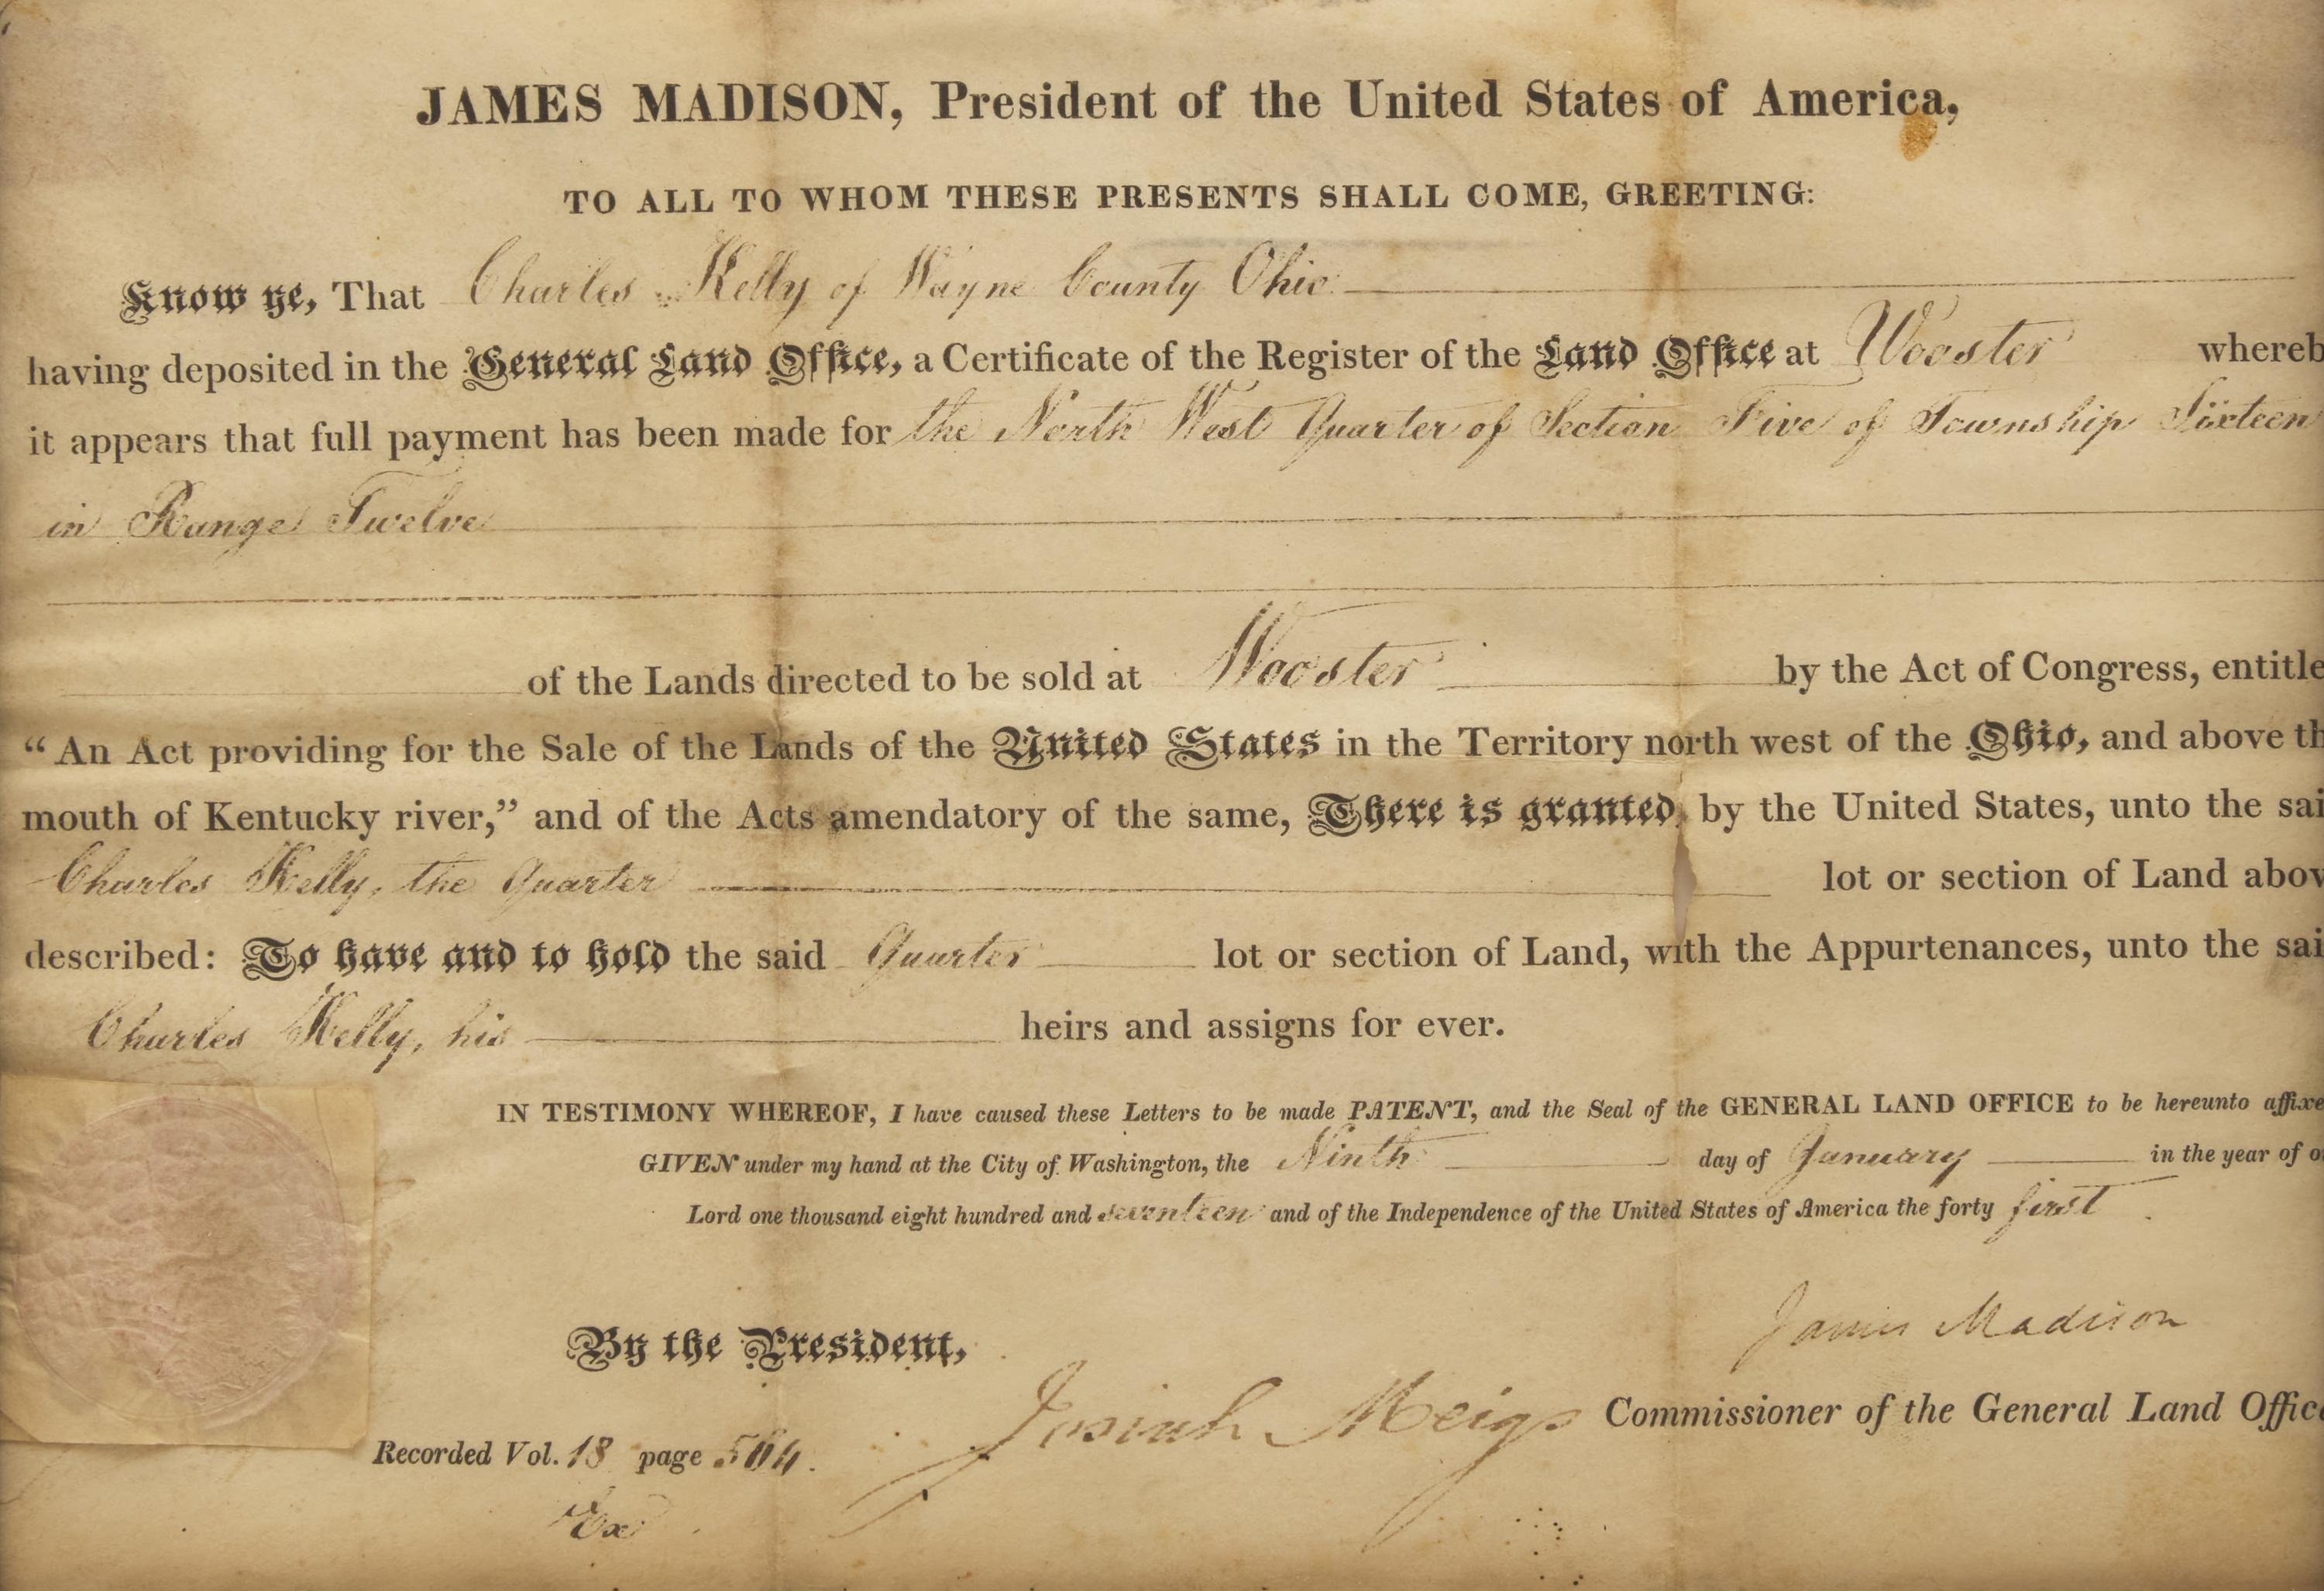 JAMES MADISON, President of the United States of America,
TO ALL TO WHOM THESE PRESENTS SHALL COME, GREETING:
Know ye, That Charles Kelly of Wayne County Ohio
having deposited in the General Land Office, a Certificate of the Register of the Land Office at Wooster whereb
it appears that full payment has been made for the North West Quarter of Section Five of Township Sixteen
in Range Twelve
of the Lands directed to be sold at Wooster by the Act of Congress, entitle
“An Act providing for the Sale of the Lands of the United States in the Territory north west of the Ohio, and above th
mouth of Kentucky river,” and of the Acts amendatory of the same, There is granted, by the United States, unto the sai
Charles Kelly, the Quarter lot or section of Land abov
described: To have and to hold the said Quarter lot or section of Land, with the Appurtenances, unto the sai
Charles Kelly, his heirs and assigns for ever.
IN TESTIMONY WHEREOF, I have caused these Letters to be made PATENT, and the Seal of the GENERAL LAND OFFICE to be hereunto affixe
GIVEN under my hand at the City of Washington, the Ninth day of January in the year of o
Lord one thousand eight hundred and seventeen and of the Independence of the United States of America the forty first
James Madison
By the President,
Josiah Meigs Commissioner of the General Land Offic
Recorded Vol. 18 page 504.
Ex